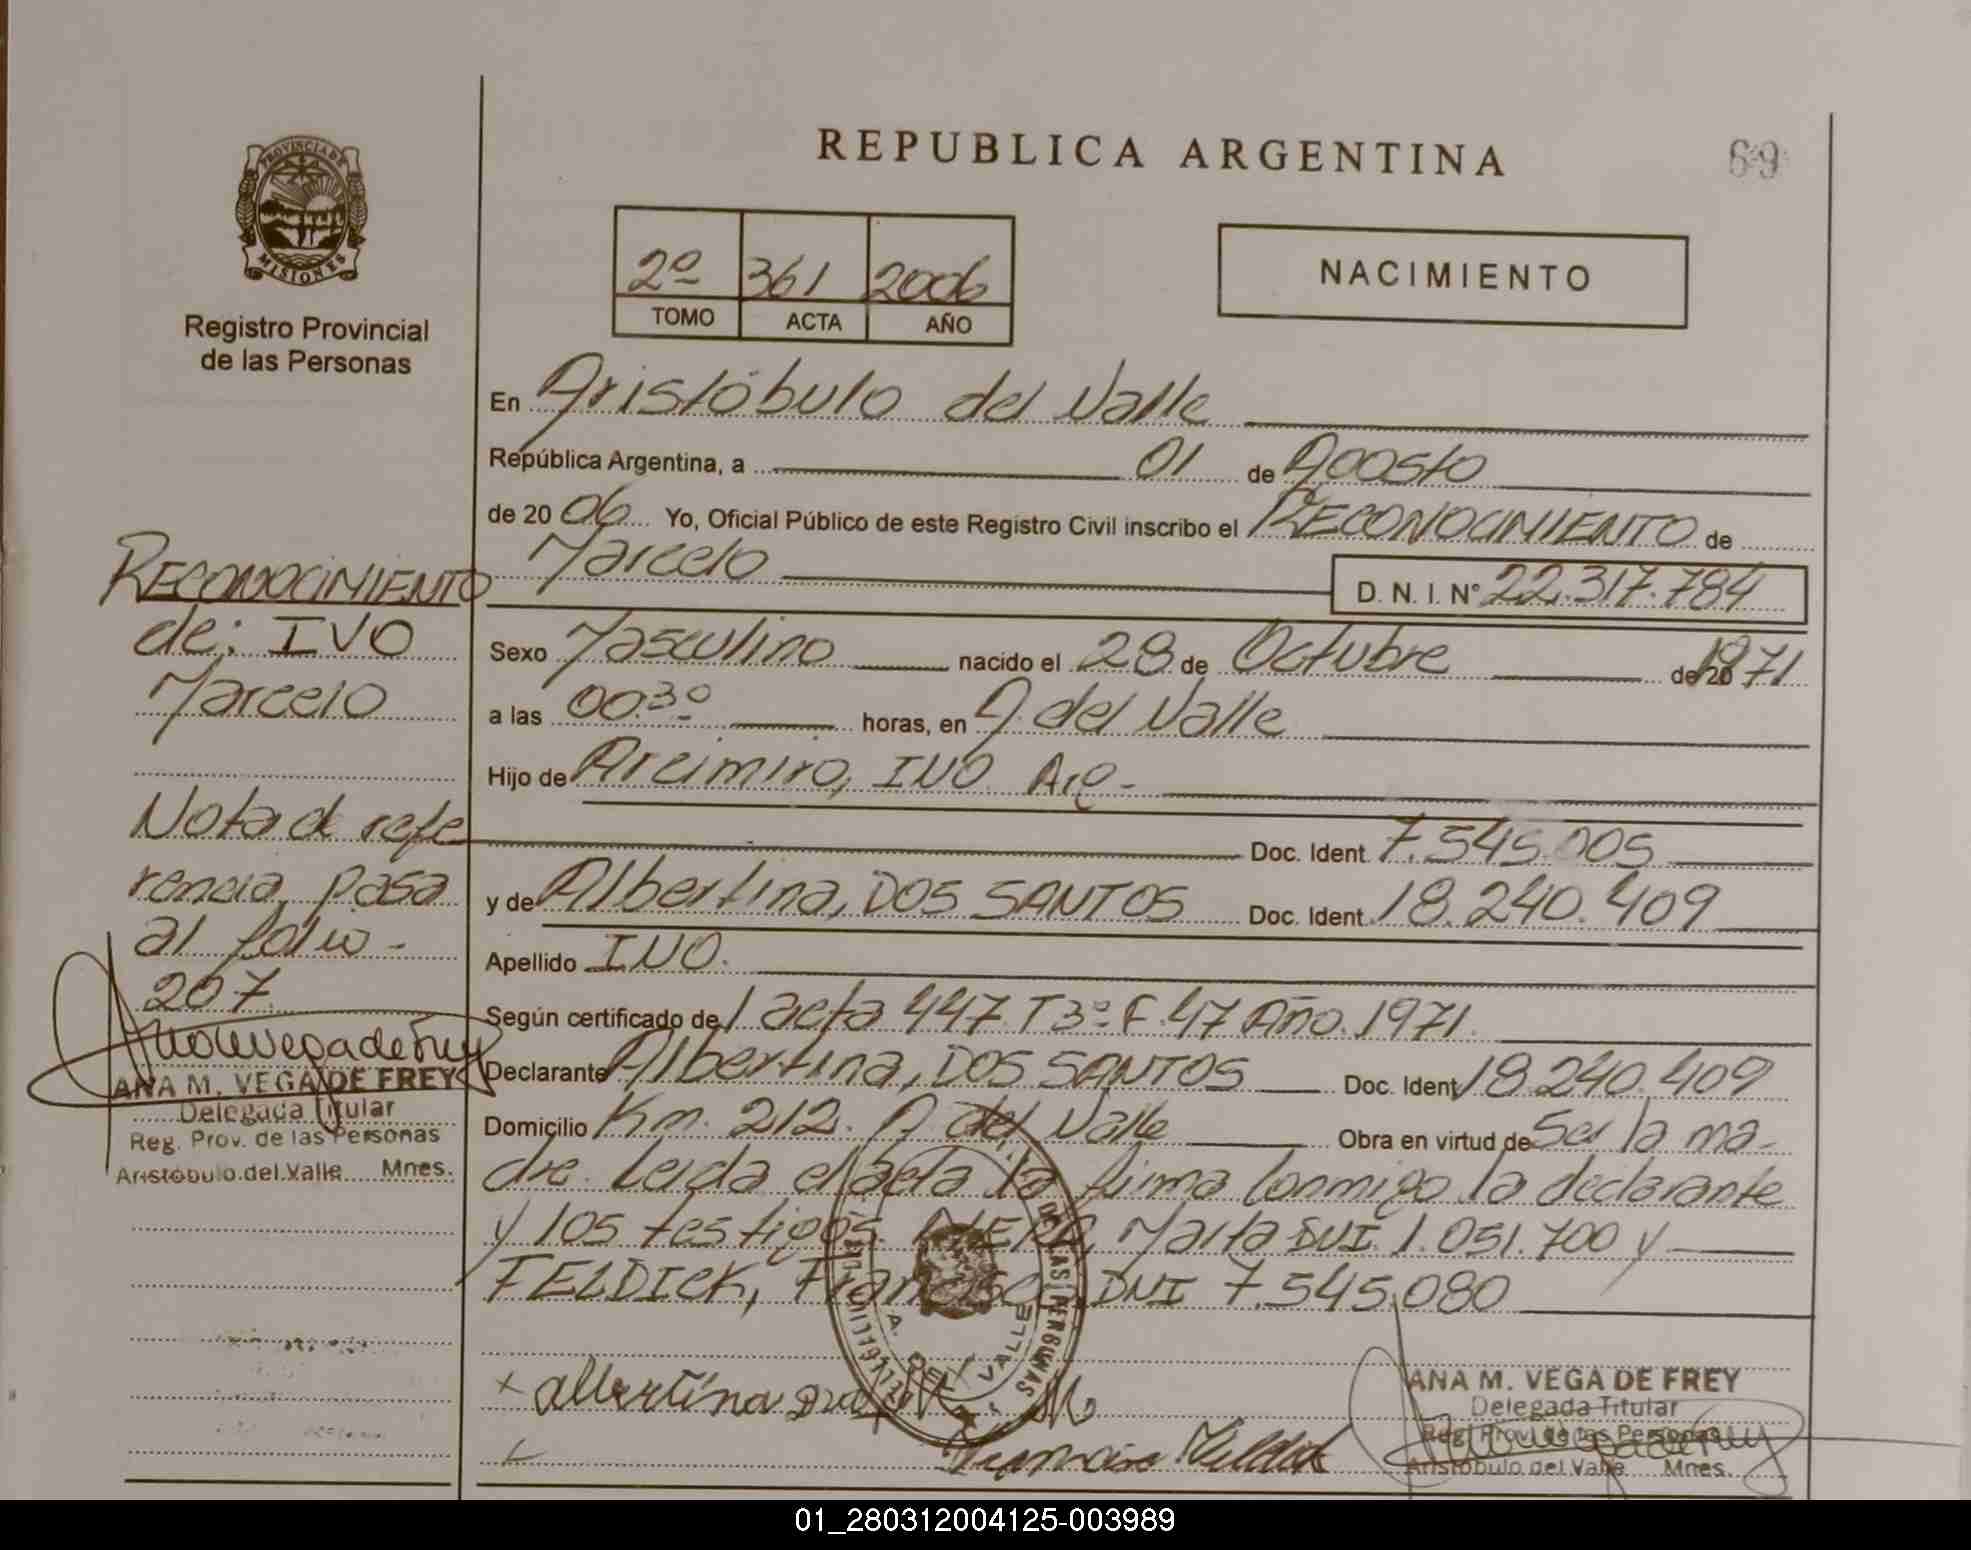 REPUBLICA ARGENTINA
69
PROVINCIA DE
MISIONES
Registro Provincial
de las Personas
2º 361 2006
TOMO ACTA AÑO
NACIMIENTO
En Aristóbulo del Valle
República Argentina, a 01 de Agosto
de 20 06 Yo, Oficial Público de este Registro Civil inscribo el RECONOCIMIENTO de
Marcelo D. N. I. Nº 22.317.784
Sexo Masculino nacido el 28 de Octubre de 1971
a las 00.30 horas, en A. del Valle
Hijo de Arcimiro, IVO Arg.-
Doc. Ident. 7.545.005
y de Albertina, DOS SANTOS Doc. Ident. 18.240.409
Apellido IVO.
Según certificado del acta 447. T 3º F. 47 Año. 1971.
Declarante Albertina, DOS SANTOS Doc. Ident 18.240.409
Domicilio Km. 212. A del Valle Obra en virtud de Ser la ma-
dre. Leida el acta la firma conmigo la declarante
y los testigos Marta DNI. 1.051.700 y
FELDICK, Francisco DNI 7.545.080
RECONOCIMIENTO
de: IVO
Marcelo
Nota de refe
rencia pasa
al folio-
207.
ANA M. VEGA DE FREY
Delegada Titular
Reg. Prov. de las Personas
Aristóbulo del Valle Mnes.
x albertina
DEL VALLE
Francisco Feldick
ANA M. VEGA DE FREY
Delegada Titular
Reg. Prov. de las Personas
Aristóbulo del Valle Mnes.
01_280312004125-003989